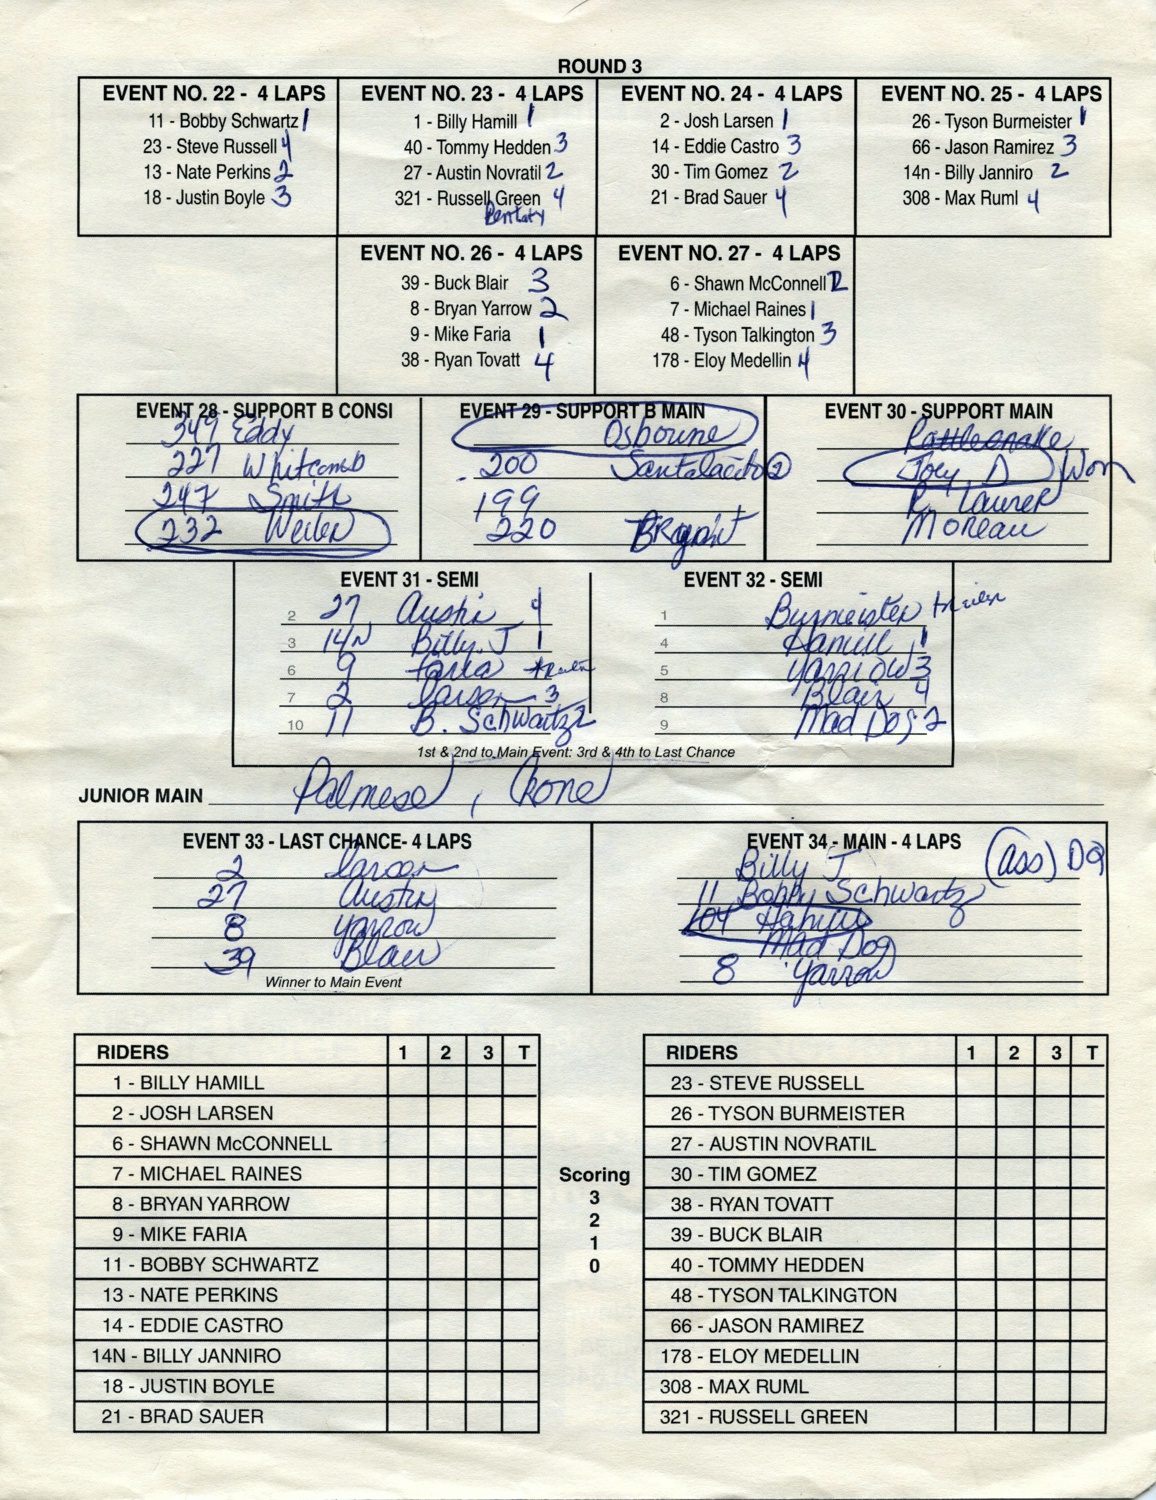 ROUND 3
EVENT NO. 22 - 4 LAPS
11 - Bobby Schwartz 1
23 - Steve Russell 4
13 - Nate Perkins 2
18 - Justin Boyle 3
EVENT NO. 23 - 4 LAPS
1 - Billy Hamill 1
40 - Tommy Hedden 3
27 - Austin Novratil 2
321 - Russell Green 4
EVENT NO. 24 - 4 LAPS
2 - Josh Larsen 1
14 - Eddie Castro 3
30 - Tim Gomez 2
21 - Brad Sauer 4
EVENT NO. 25 - 4 LAPS
26 - Tyson Burmeister 1
66 - Jason Ramirez 3
14n - Billy Janniro 2
308 - Max Ruml 4
EVENT NO. 26 - 4 LAPS
39 - Buck Blair 3
8 - Bryan Yarrow 2
9 - Mike Faria 1
38 - Ryan Tovatt 4
EVENT NO. 27 - 4 LAPS
6 - Shawn McConnell 2
7 - Michael Raines 1
48 - Tyson Talkington 3
178 - Eloy Medellin 4
EVENT 28 - SUPPORT B CONSI
349 Eddy
227 Whitcomb
247 Smith
232 Weiler
EVENT 29 - SUPPORT B MAIN
Osbourne
200 2
199
220 Bryant
EVENT 30 - SUPPORT MAIN
Rattlesnake
Joey D Won
R.
Moreau
EVENT 31 - SEMI
2 27 Austin 4
3 14N Billy J 1
6 9 Faria
7 2 Larsen 3
10 11 B. Schwartz 2
EVENT 32 - SEMI
1 Burmeister
4 Hamill 1
5 Yarrow 3
8 Blair 4
9 Mad Dog 2
1st & 2nd to Main Event: 3rd & 4th to Last Chance
JUNIOR MAIN Palmese, Crone
EVENT 33 - LAST CHANCE- 4 LAPS
2 Larsen
27 Austin
8 Yarrow
39 Blair
Winner to Main Event
EVENT 34 - MAIN - 4 LAPS
Billy J (ass) DQ
11 Bobby Schwartz
Hamill
Mad Dog
8 Yarrow
RIDERS 1 2 3 T
1 - BILLY HAMILL
2 - JOSH LARSEN
6 - SHAWN McCONNELL
7 - MICHAEL RAINES
8 - BRYAN YARROW
9 - MIKE FARIA
11 - BOBBY SCHWARTZ
13 - NATE PERKINS
14 - EDDIE CASTRO
14N - BILLY JANNIRO
18 - JUSTIN BOYLE
21 - BRAD SAUER
Scoring
3
2
1
0
RIDERS 1 2 3 T
23 - STEVE RUSSELL
26 - TYSON BURMEISTER
27 - AUSTIN NOVRATIL
30 - TIM GOMEZ
38 - RYAN TOVATT
39 - BUCK BLAIR
40 - TOMMY HEDDEN
48 - TYSON TALKINGTON
66 - JASON RAMIREZ
178 - ELOY MEDELLIN
308 - MAX RUML
321 - RUSSELL GREEN